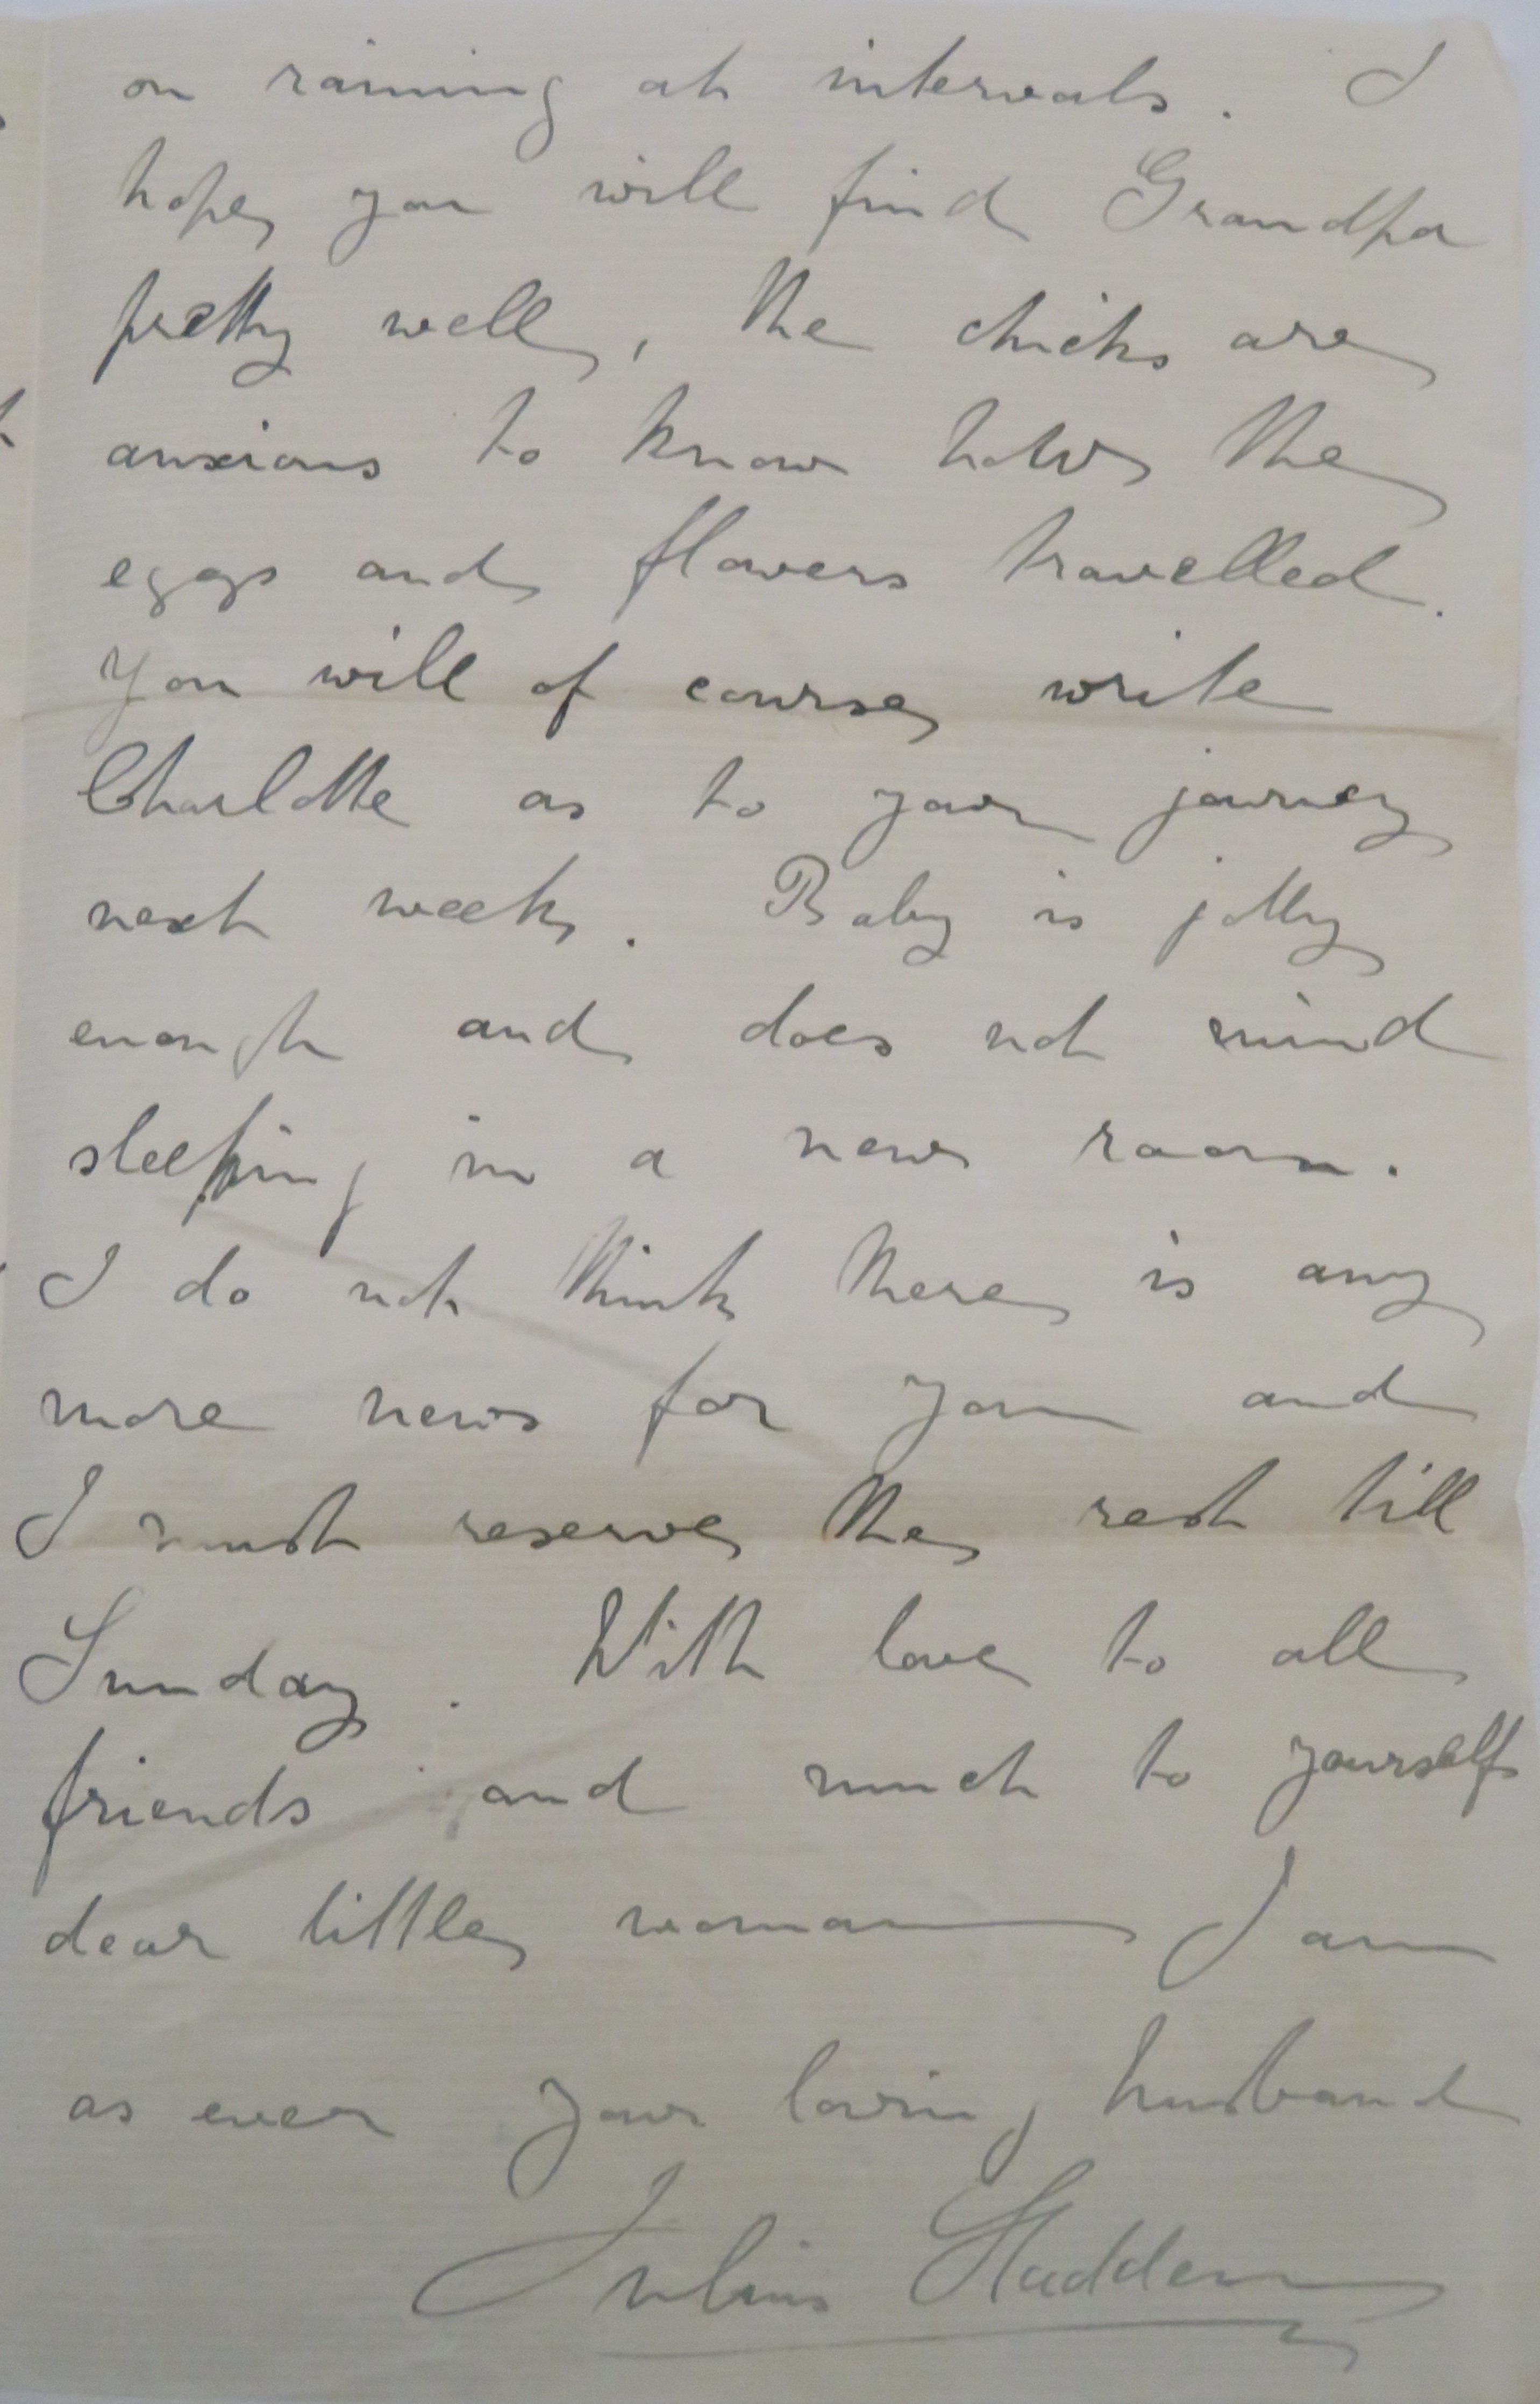 on raining at intervals. I
hope you will find Grandpa
pretty well, the chicks are
anxious to know how the
eggs and flowers travelled.
You will of course write
Charlotte as to your journey
next week. Baby is jolly
enough and does not mind
sleeping in a new room.
I do not think there is any
more news for you and
I must reserve the rest till
Sunday. With love to all
friends and much to yourself
dear little woman I am
as ever your loving husband
Julius